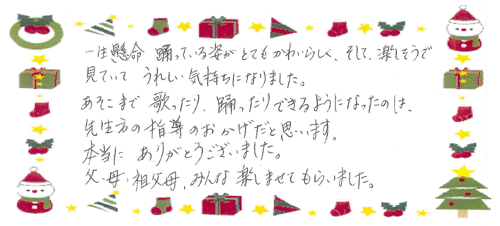 一生懸命 踊っている姿がとてもかわいらしく、そして、楽しそうで
見ていて うれしい気持ちになりました。
あそこまで 歌ったり、踊ったりできるようになったのは、
先生方の指導のおかげだと思います。
本当に ありがとうございました。
父・母・祖父母、みんな楽しませてもらいました。